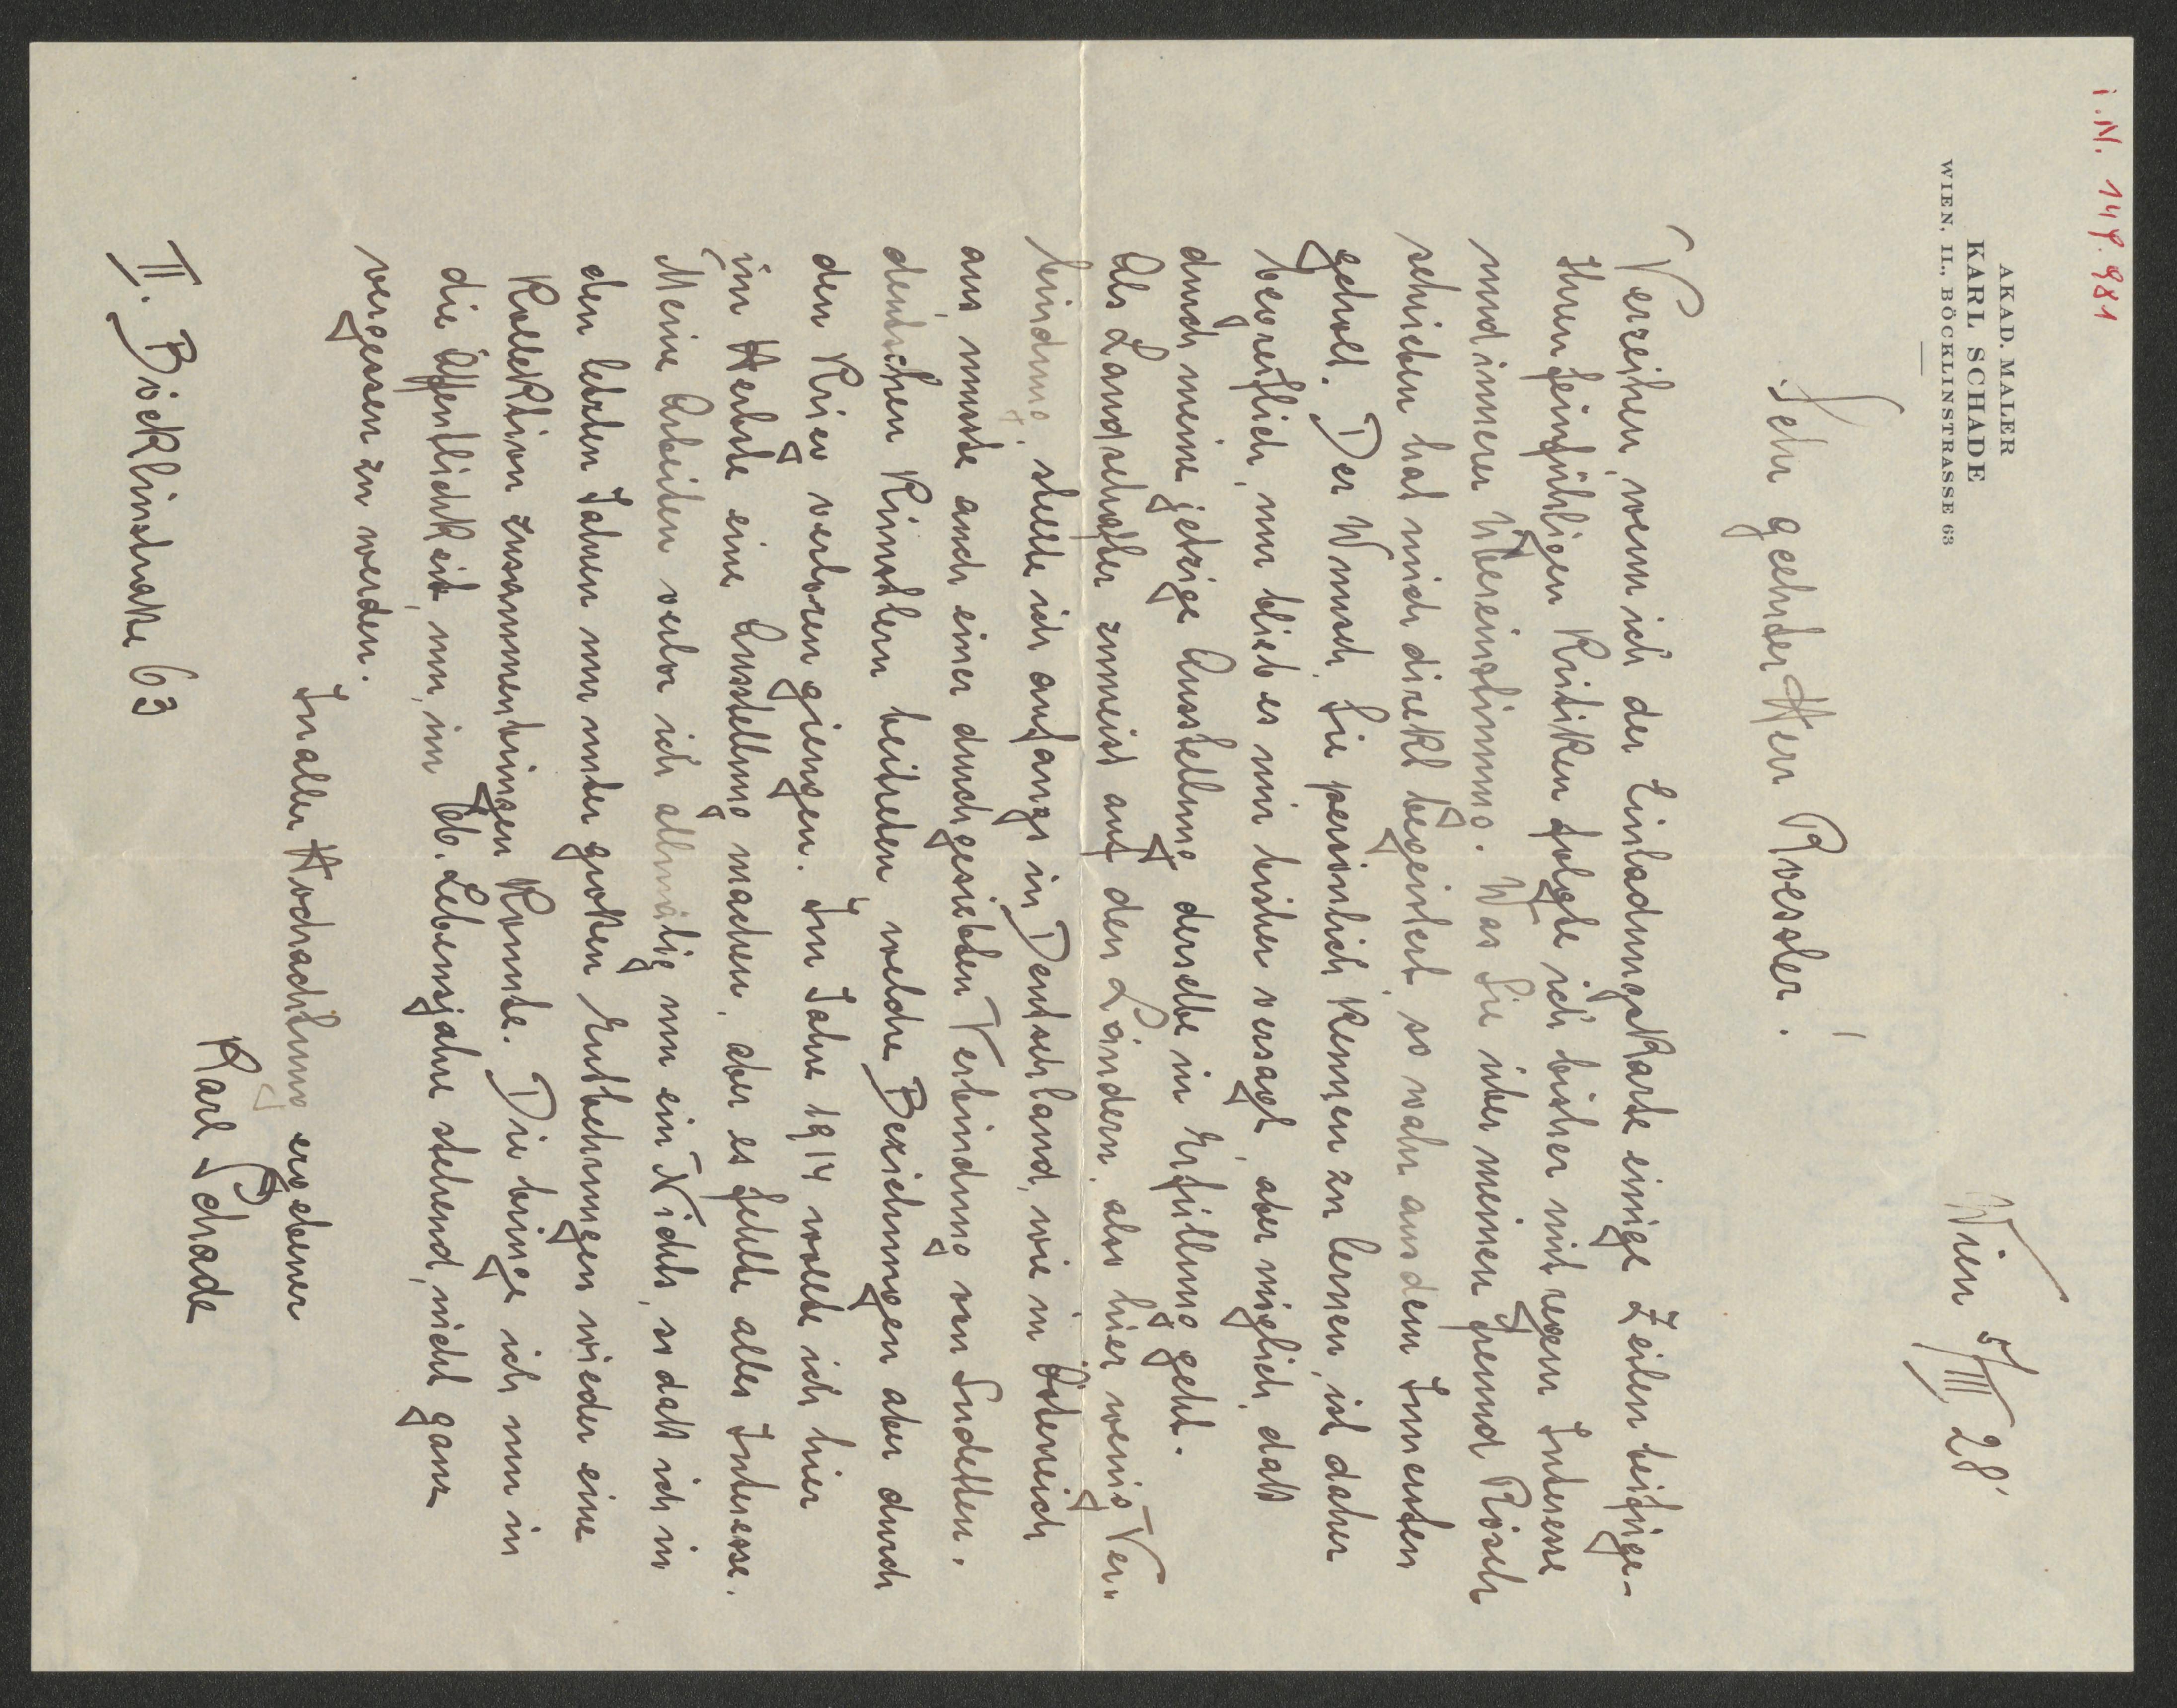 i.N. 149.981
AKAD. MALER
KARL SCHADE
WIEN, II., BÖCKLINSTRASSE 63
Wien 5/III 28'
Sehr geehrter Herr Roessler!
Verzeihen, wenn ich der Einladungskarte einige Zeilen beifüge-
Ihren feinfühligen Kritiken folgte ich bisher mit regem Interesse
und innerer Übereinstimmung. Was Sie über meinen Freund Rösch
schrieben hat mich direkt begeistert, so wahr aus dem Innersten
geholt. Der Wunsch, Sie persönlich kennen zu lernen, ist daher
begreiflich, nur blieb es mir bisher versagt, aber möglich, daß
durch meine jetzige Ausstellung derselbe in Erfüllung geht.
Als Landschafter zumeist auf den Ländern, also hier wenig Ver-
bindung, stellte ich anfangs in Deutschland, wie in Österreich
aus, musste auch einer durchgesiebten Verbindung von Sudetten-
deutschen Künstlern beitreten, welche Beziehungen aber durch
den Krieg verloren giengen. Im Jahre 1914 wollte ich hier
im Herbste eine Ausstellung machen, aber es fehlte alles Interesse.
Meine Arbeiten verlor ich allmälig um ein Nichts, so daß ich in
den letzten Jahren nur unter großen Entbehrungen wieder eine
Kollektion zusammenbringen konnte. Die bringe ich nun in
die Öffentlichkeit, um, im 66. Lebensjahre stehend, nicht ganz
vergessen zu werden.
In aller Hochachtung ergebener
Karl Schade
II. Böcklinstraße 63